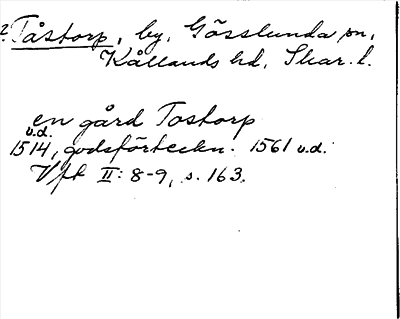 ? Tåstorp, by, Gösslunda sn,
Kållands hd, Skar. l.
en gård Tostorp
u.d.
1514, godsförteckn. 1561 u.d.
Vft II: 8-9, s. 163.